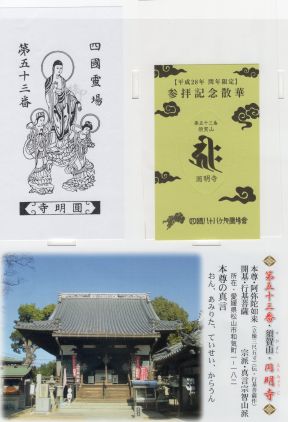 四國靈場
第五十三番
圓明寺
【平成28年 閏年限定】
参拝記念散華
第五十三番
須賀山
圓明寺
四国八十八ヶ所霊場会
第五十三番・須賀山・円明寺
本尊・阿弥陀如来
開基・行基菩薩 宗派・真言宗智山派
所在・愛媛県松山市和気町一-一八二
本尊の真言
おん、あみりた、ていせい、からうん